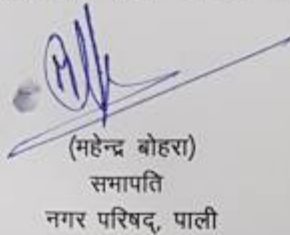 (महेन्द्र बोहरा)
सभापति
नगर परिषद्, पाली